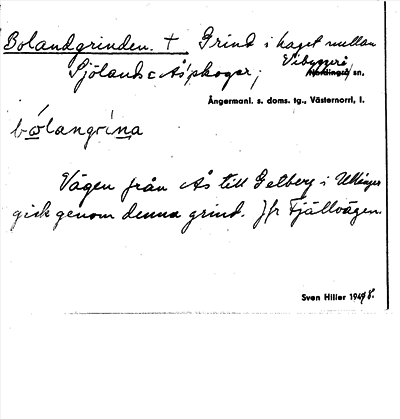 Bolandgrinden. † Grind i haget mellan
Sjöland o Ås' skogar; Vibyggerå
Nordingrå sn.
Ångermanl. s. doms. tg., Västernorrl. l.
bølangrína
Vägen från Ås till Getberg i Ullånger
gick genom denna grind. Jfr Fjällvägen.
Sven Hiller 1948.